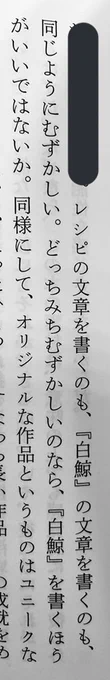 レシピの文章を書くのも、『白鯨』の文章を書くのも、
同じようにむずかしい。どっちみちむずかしいのなら、『白鯨』を書くほう
がいいではないか。同様にして、オリジナルな作品というものはユニークな